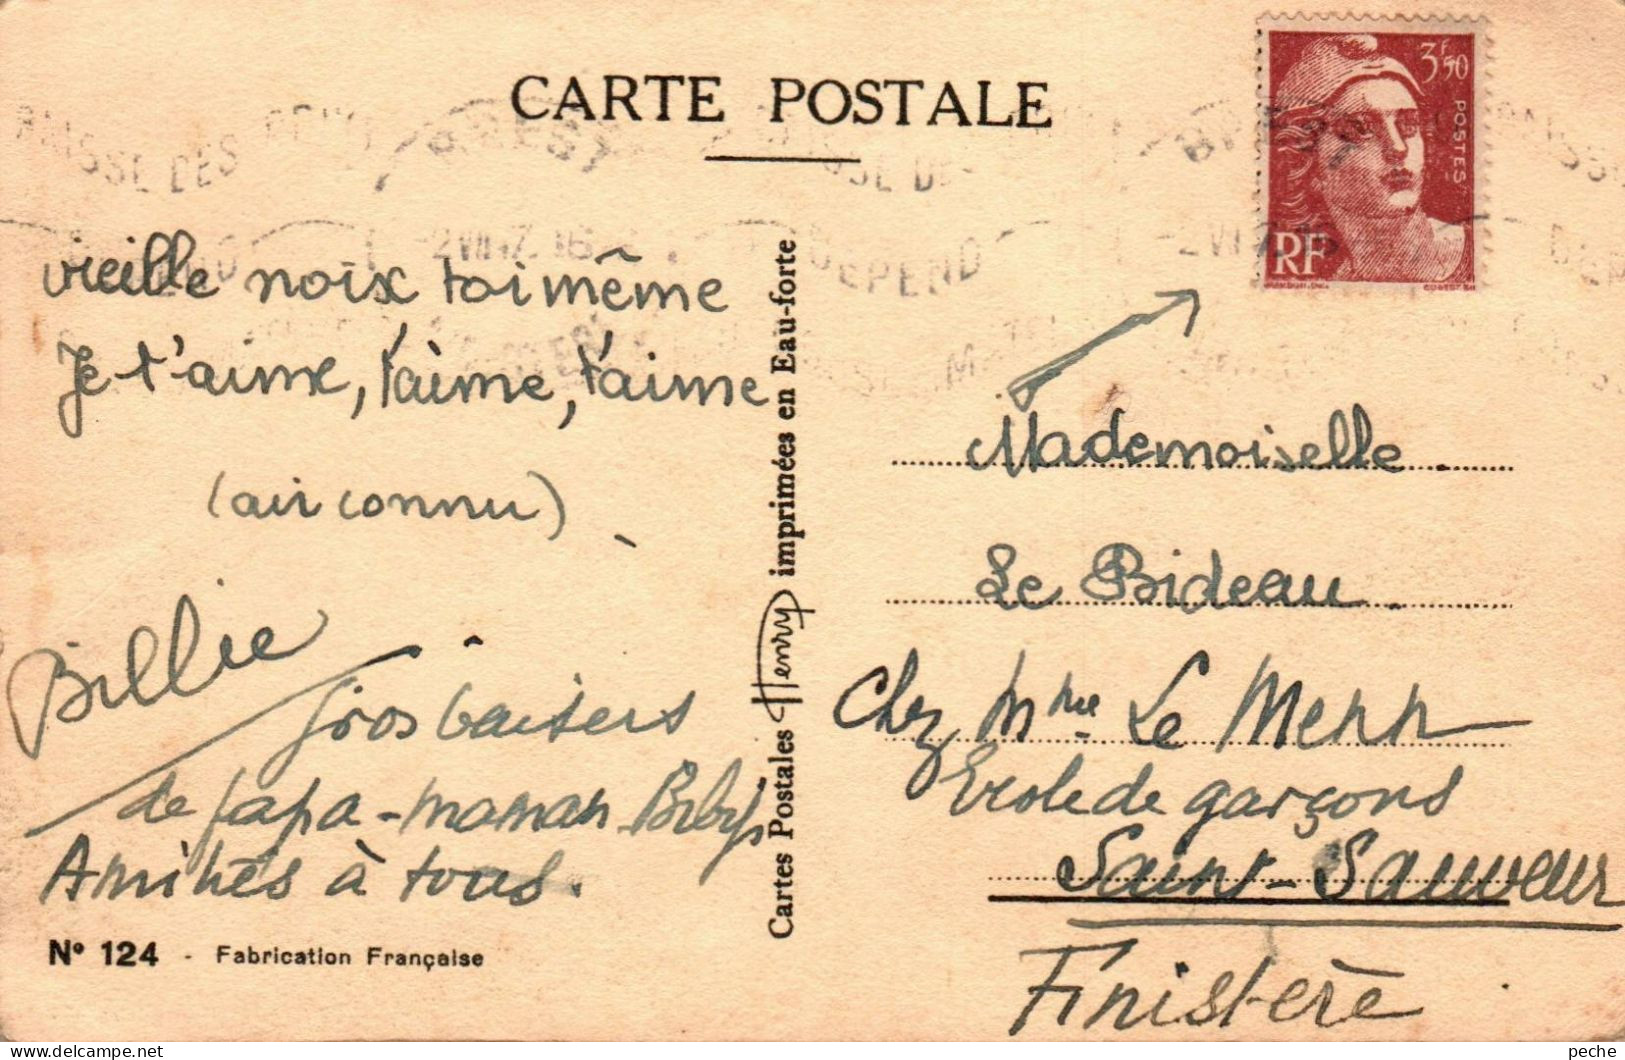 CARTE POSTALE
3F50
POSTES
RF
BREST
BREST
DEPEND
vieille noix toi même
Je t'aime, t'aime, t'aime
(air connu)
Billie
Gros baisers
de papa-maman-Biby
Amitiés à tous.
N° 124 - Fabrication Française
Cartes Postales Henry imprimées en Eau-forte
Mademoiselle
Le Bideau.
Chez Mme Le Menn
Ecole de garçons
Saint-Sauveur
Finistère
peche